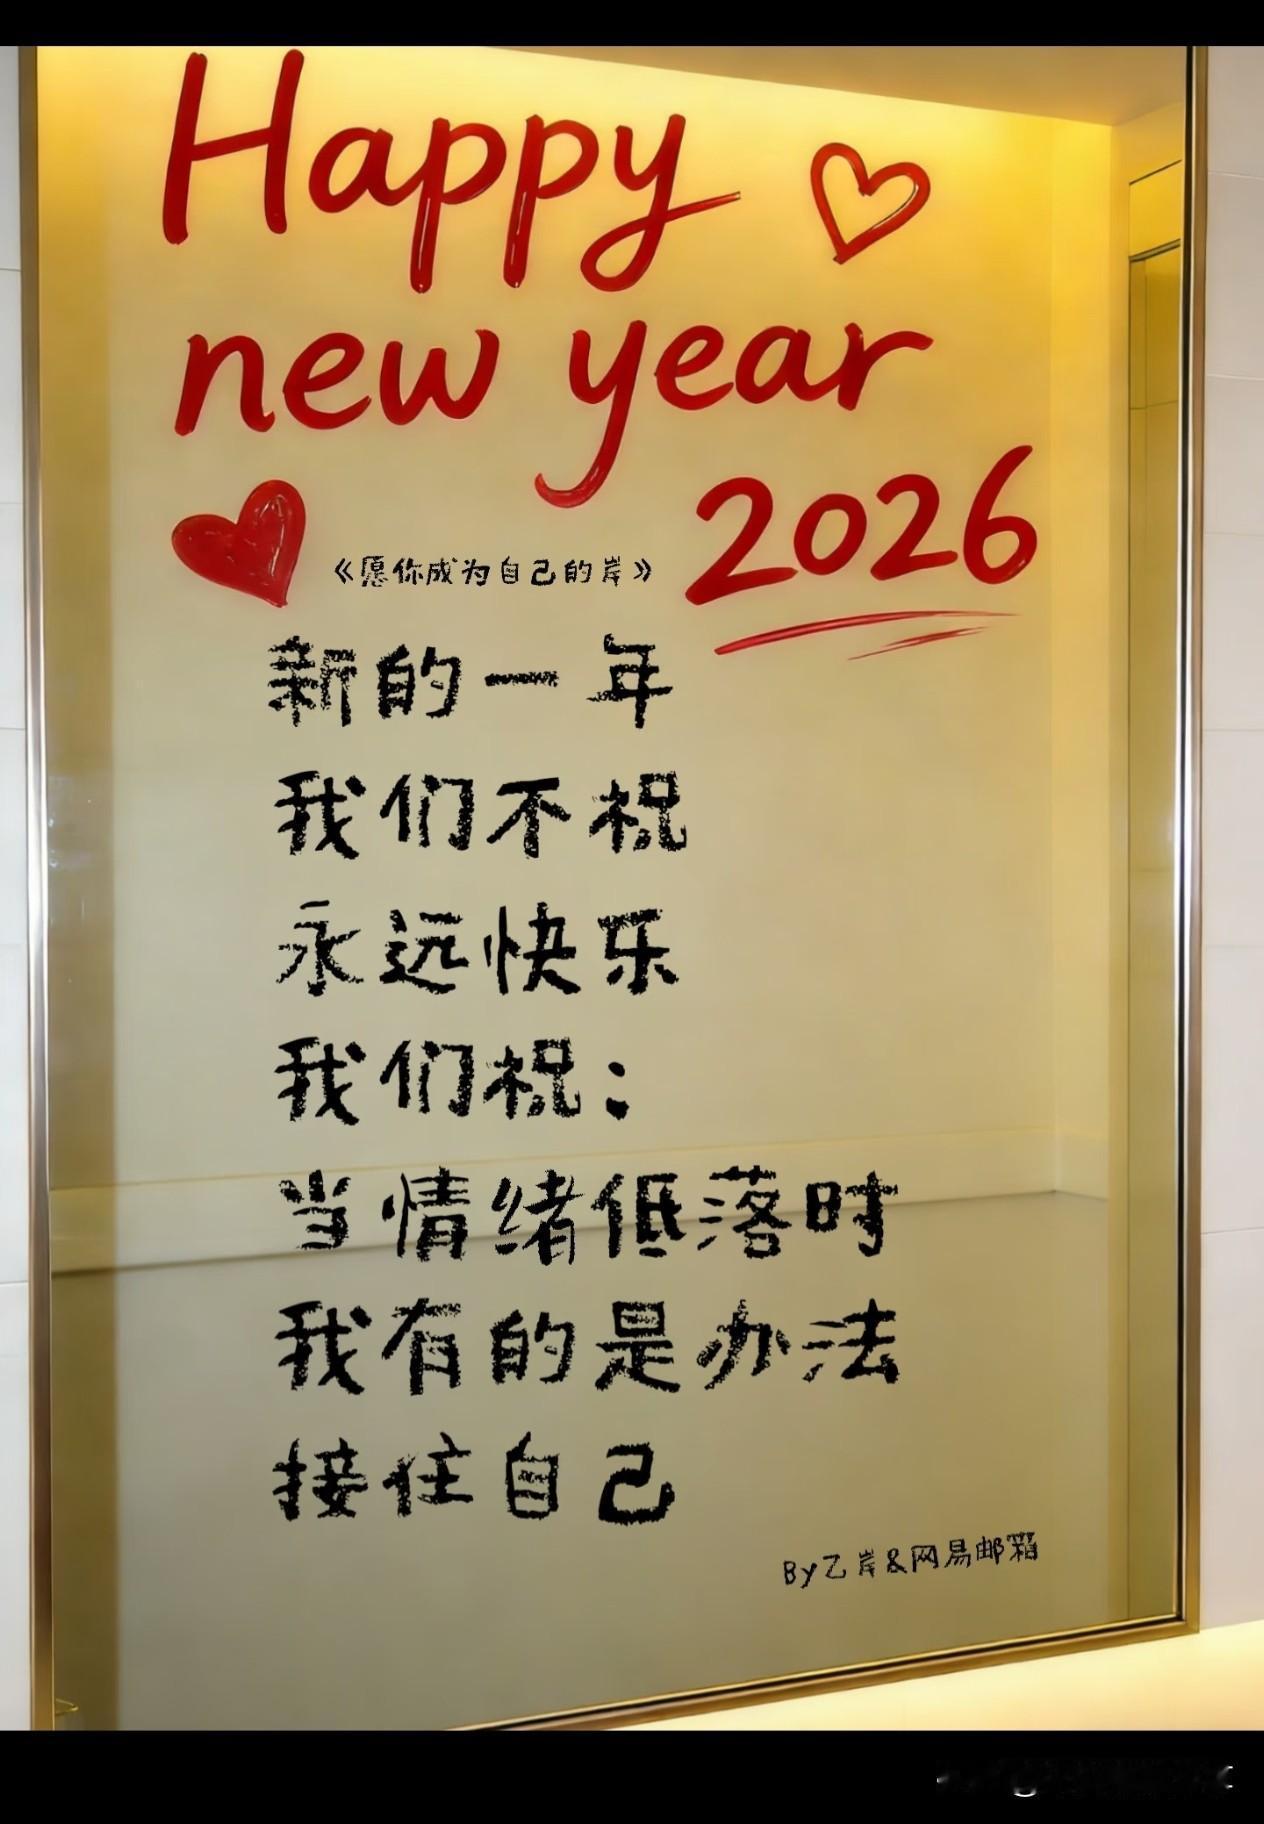 Happy
new year
2026
《愿你成为自己的岸》
新的一年
我们不祝
永远快乐
我们祝：
当情绪低落时
我有的是办法
接住自己
By乙岸&网易邮箱